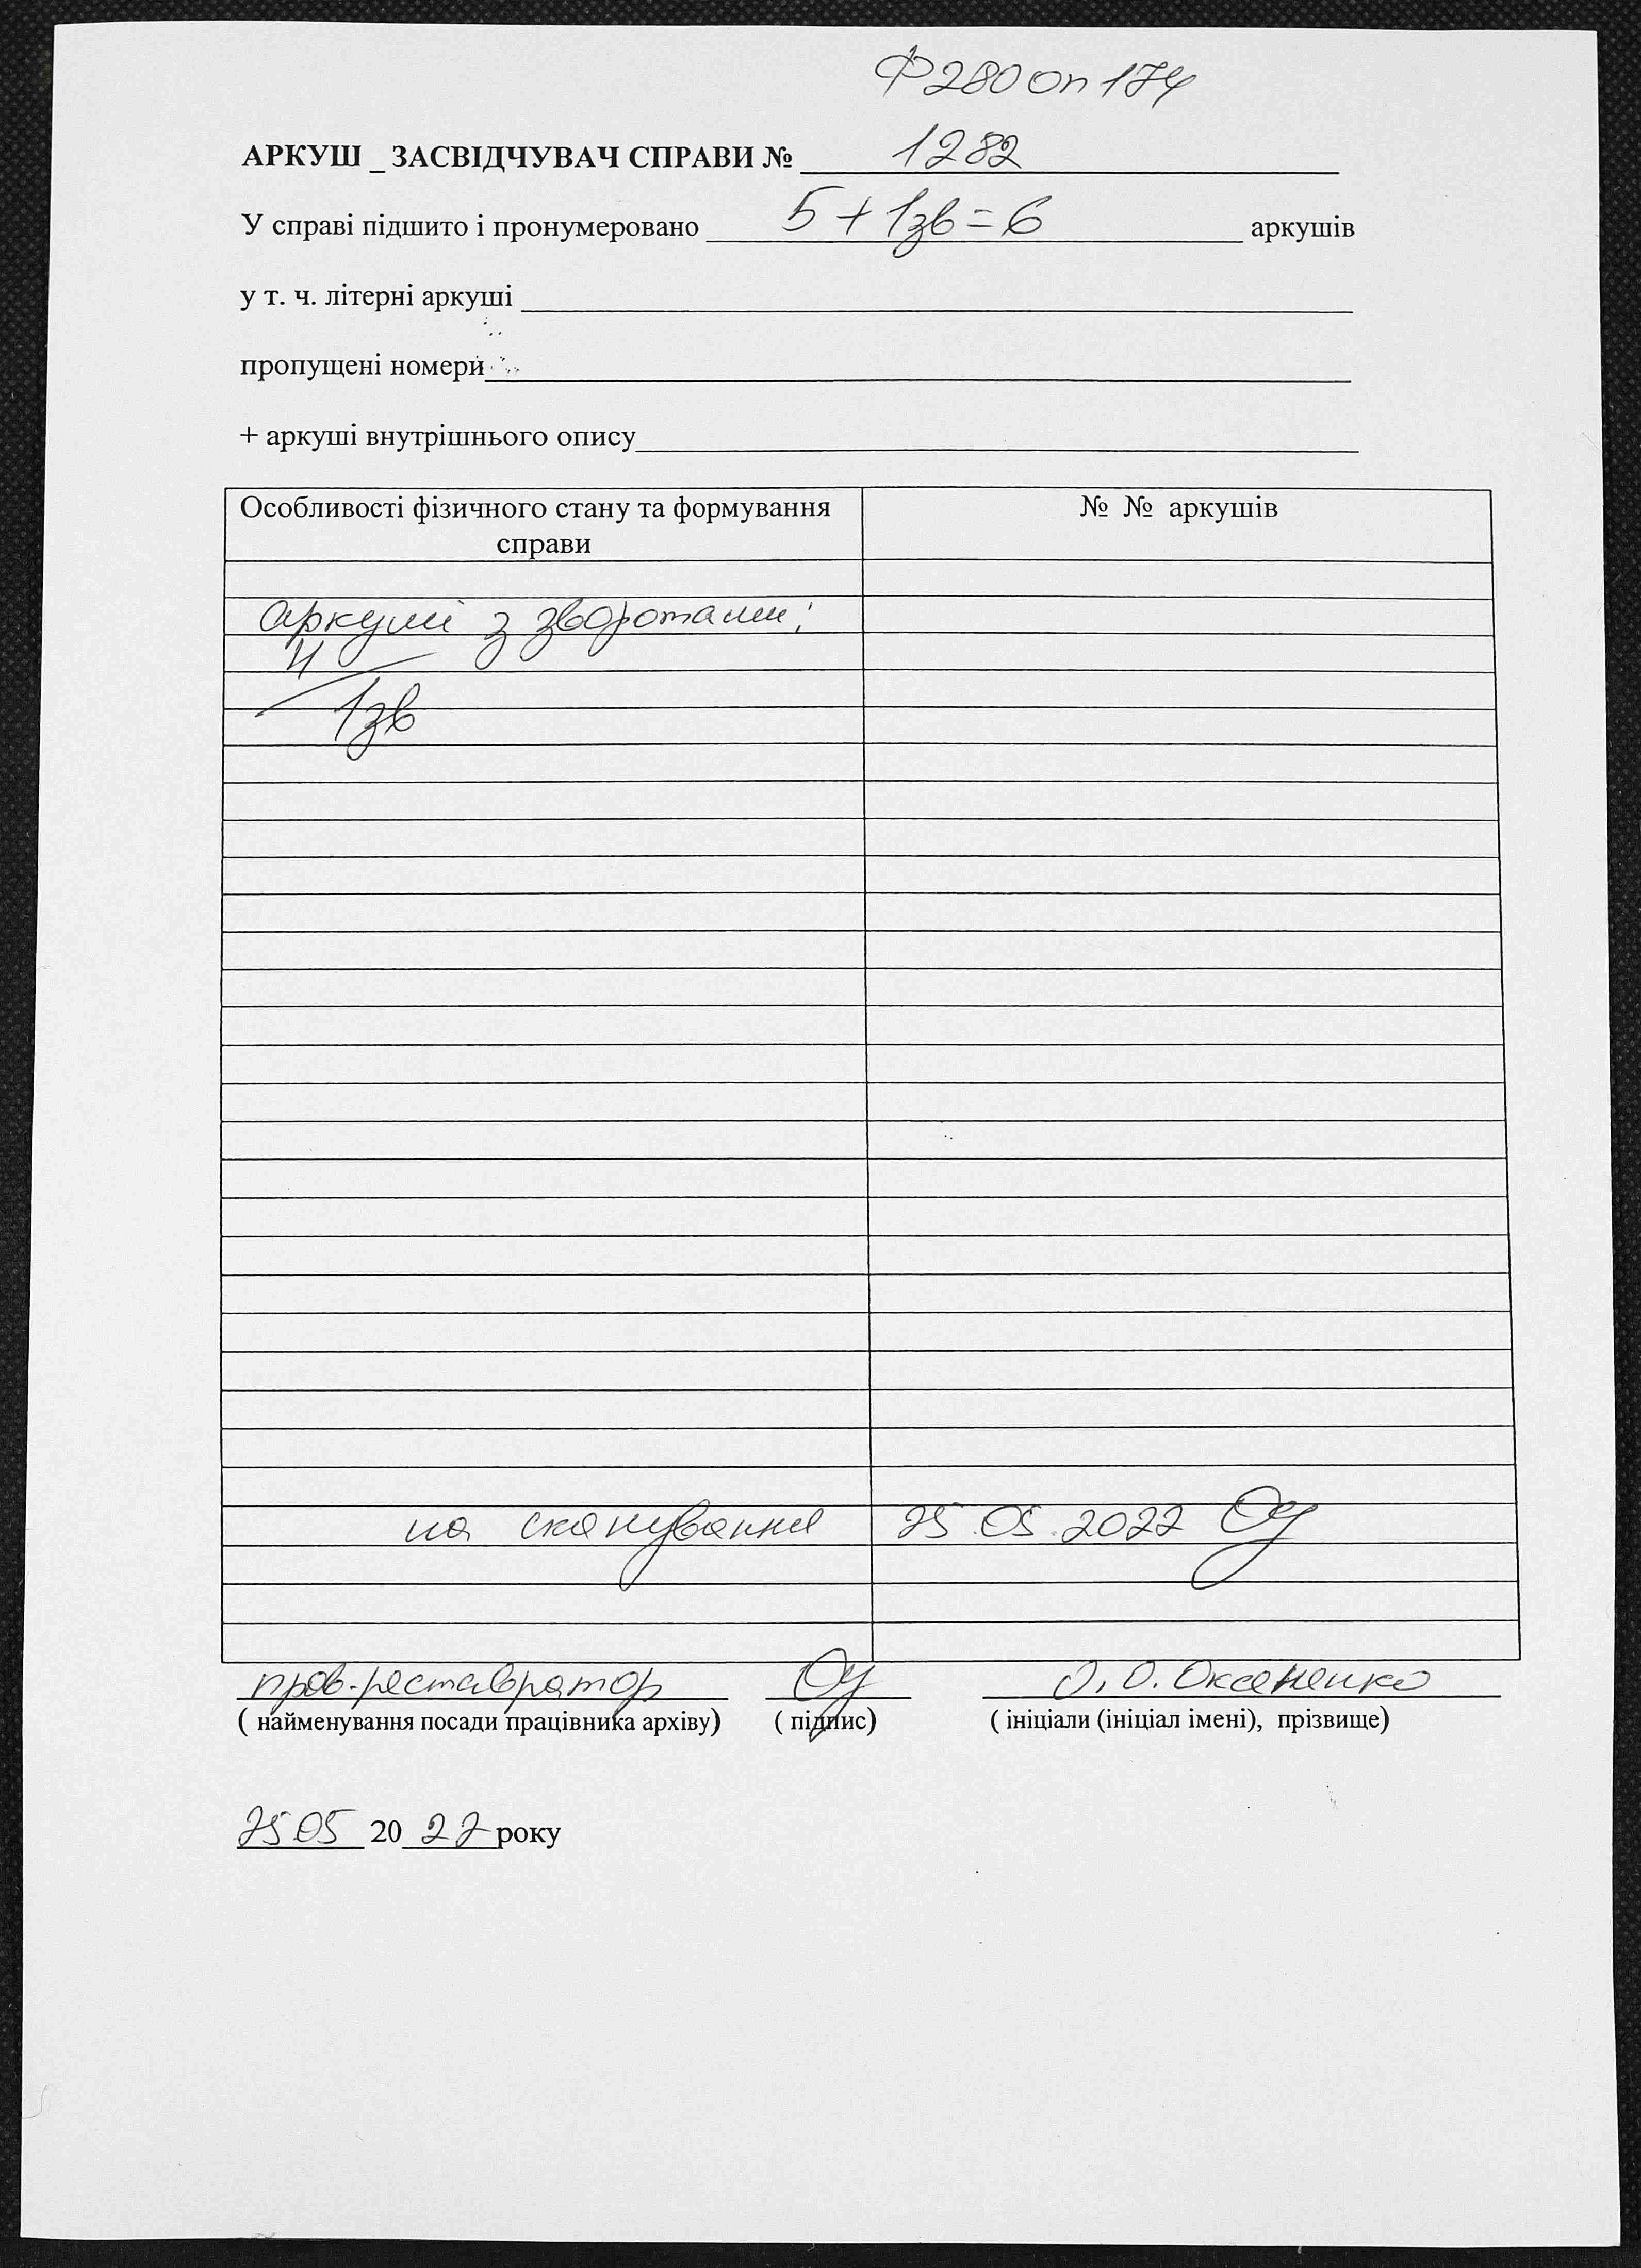 Ф280 оп 174
АРКУШ _ ЗАСВІДЧУВАЧ СПРАВИ № 1282
У справі підшито і пронумеровано 5+1зв=6 аркушів
у т. ч. літерні аркуші
пропущені номери
+ аркуші внутрішнього опису
Особливості фізичного стану та формування справи № № аркушів
аркуші з зворотами:
4
1зв
на сканування 25.05.2022
пров.реставратор О.О. Оксененко
( найменування посади працівника архіву) ( підпис) ( ініціали (ініціал імені), прізвище)
25 05 20 22 року